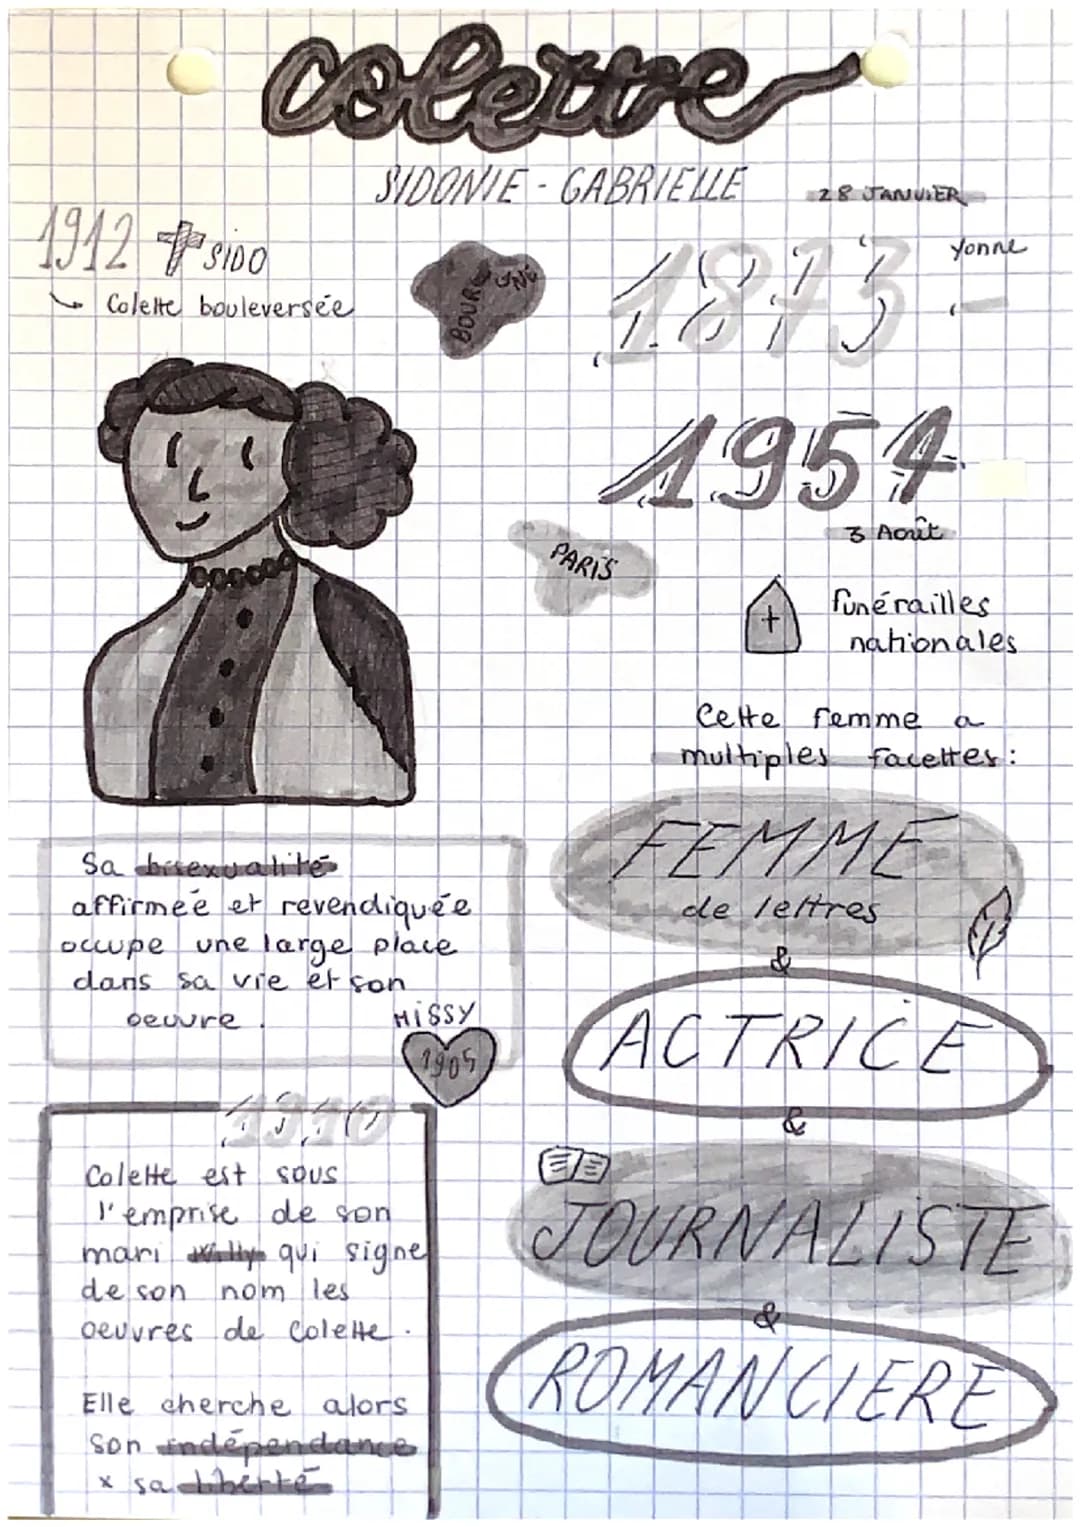 Colette
SIDONIE - GABRIELLE
28 JANVIER
1912 SIDO
Colette bouleversée
BOURGOGNE
1873
Yonne
1954
3 Août
PARIS
funérailles
nationales
Cette femme a
multiples facettes :
FEMME
de lettres
&
ACTRICE
&
JOURNALISTE
&
ROMANCIERE
Sa bisexualité
affirmée et revendiquée
occupe une large place
dans sa vie et son
oeuvre .
MiSSY
1905
1910
Colette est sous
l'emprise de son
mari Willy qui signe
de son nom les
oeuvres de Colette .
Elle cherche alors
son indépendance
x sa liberté